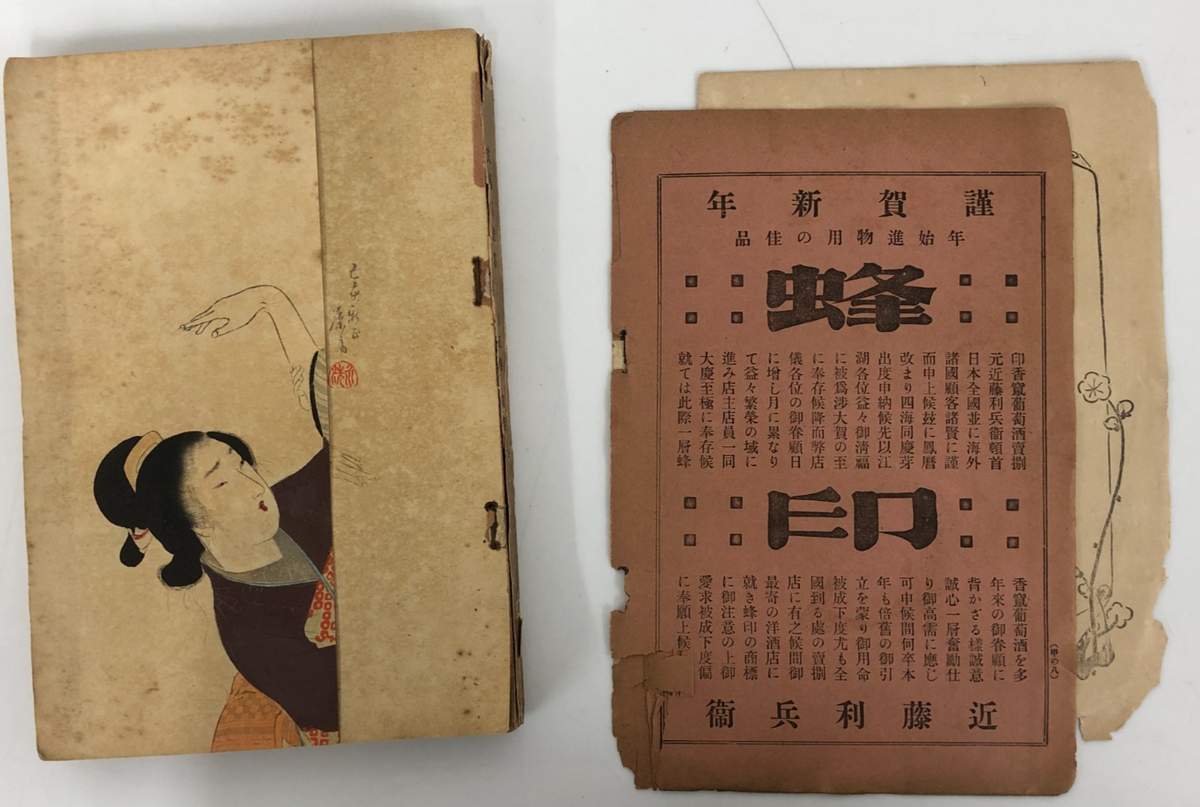 謹賀新年
年始進物用の佳品
蜂
印香竄葡萄酒賣捌
元近藤利兵衞頓首
日本全國並に海外
諸國顧客諸賢に謹
而申上候玆に鳳曆
改まり四海同慶芽
出度申納候先以江
湖各位益々御淸福
に被爲涉大賀の至
に奉存候降而弊店
儀各位の御眷顧日
に增し月に累なり
て益々繁榮の域に
進み店主店員一同
大慶至極に奉存候
就ては此際一層蜂
印
香竄葡萄酒を多
年來の御眷顧に
背かざる樣誠意
誠心一層奮勵仕
り御高需に應じ
可申候間何卒本
年も倍舊の御引
立を蒙り御用命
被成下度尤も全
國到る處の賣捌
店に有之候間御
最寄の洋酒店に
就き蜂印の商標
に御注意の上御
愛求被成下度偏
に奉願上候
近藤利兵衞